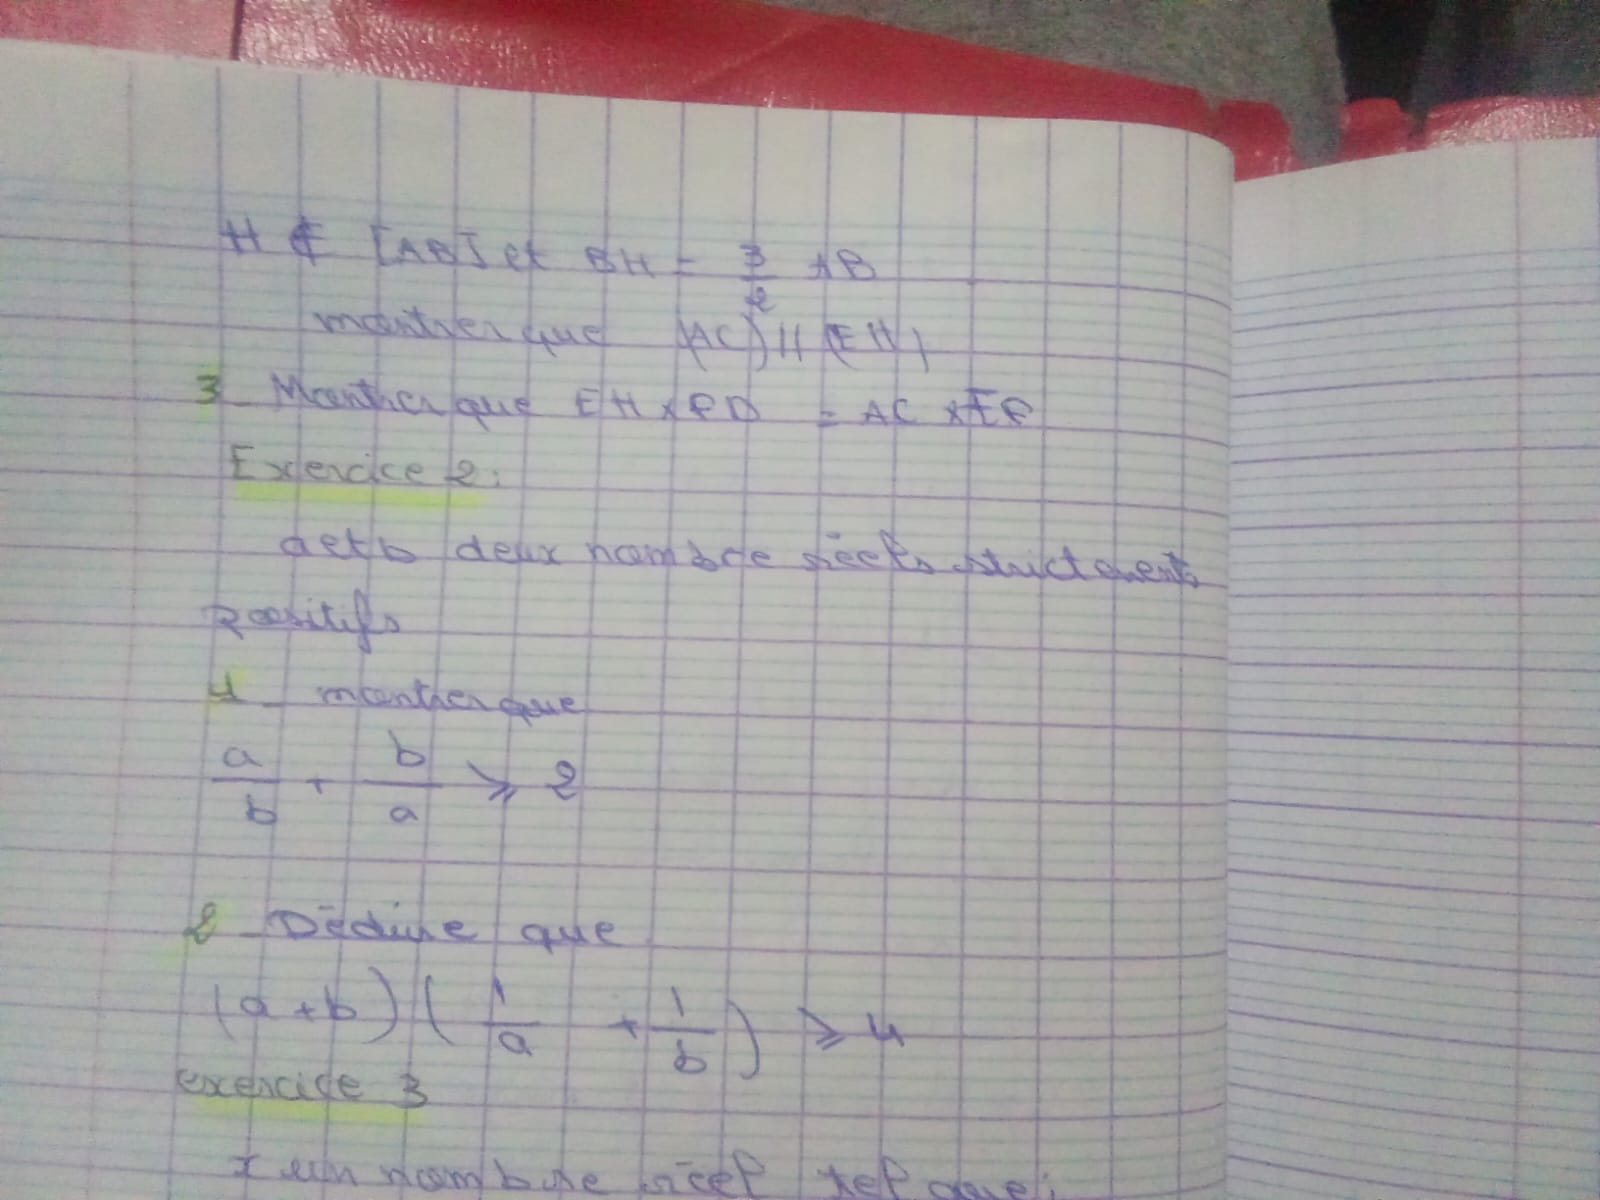 H ∉ [AB] et BH = 3/2 AB
montrer que (AC) // (EH)
3_ Montrer que EH x FD = AC x EF
Exercice 2:
a et b deux nombre réels strictements
positifs
1_ montrer que
a/b + b/a ⩾ 2
2_ Déduire que
(a+b)(1/a + 1/b) ⩾ 4
exercice 3
x un nombre réel tel que: